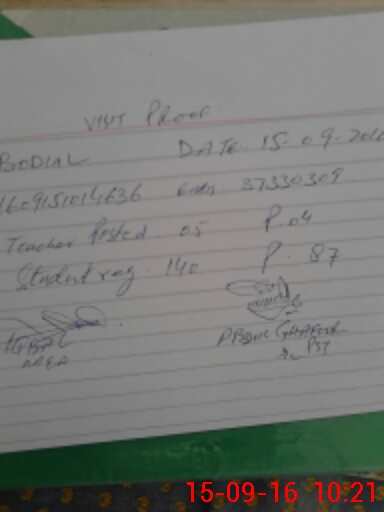 VISIT PROOF
BODIAL DATE. 15.09.2016
1609151014636 Emis 37330309
Teacher Posted 05 P.04
Student reg. 140 P. 87
MEA
PST
15-09-16 10:21